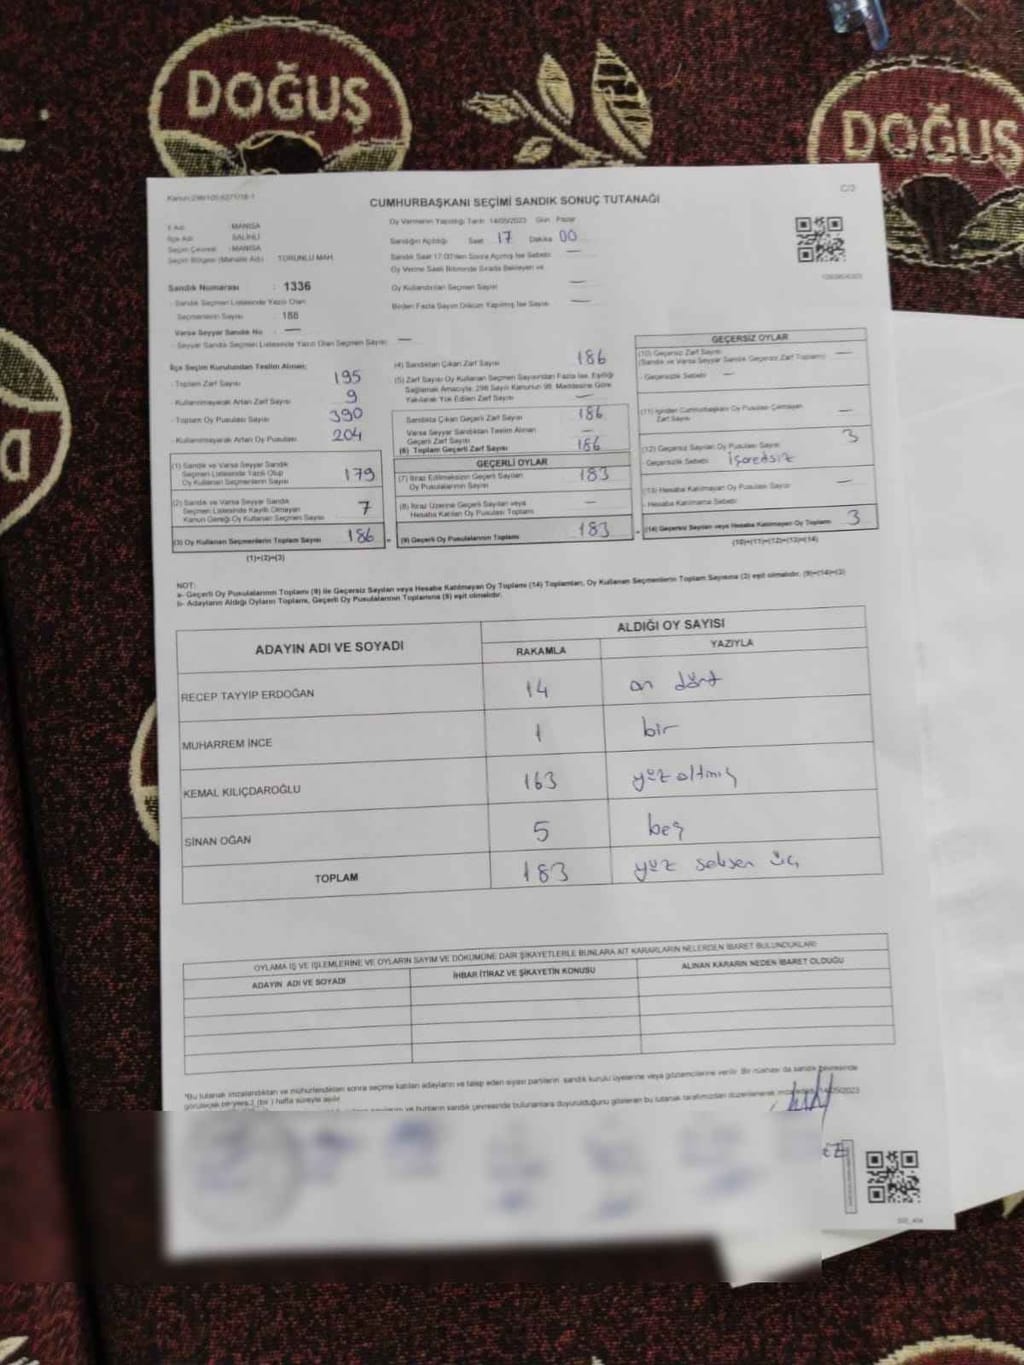 DOĞUŞ
DOĞUŞ
C/3
CUMHURBAŞKANI SEÇİMİ SANDIK SONUÇ TUTANAĞI
İl Adı : MANİSA
İlçe Adı : SALİHLİ
Seçim Çevresi : MANİSA
Seçim Bölgesi (Mahalle Adı) : TORUNLU MAH.
Sandık Numarası : 1336
- Sandık Seçmen Listesinde Yazılı Olan
Seçmenlerin Sayısı : 188
Varsa Seyyar Sandık No : —
- Seyyar Sandık Seçmen Listesinde Yazılı Olan Seçmen Sayısı : —
Oy Vermenin Yapıldığı Tarih 14/05/2023 Gün Pazar
Sandığın Açıldığı Saat 17 Dakika 00
Sandık Saat 17:00'den Sonra Açılmış İse Sebebi —
Oy Verme Saati Bitiminde Sırada Bekleyen ve
Oy Kullandırılan Seçmen Sayısı —
Birden Fazla Sayım Döküm Yapılmış İse Sayısı —
İlçe Seçim Kurulundan Teslim Alınan;
- Toplam Zarf Sayısı 195
- Kullanılmayarak Artan Zarf Sayısı 9
- Toplam Oy Pusulası Sayısı 390
- Kullanılmayarak Artan Oy Pusulası 204
(1) Sandık ve Varsa Seyyar Sandık
Seçmen Listesinde Yazılı Olup
Oy Kullanan Seçmenlerin Sayısı 179
(2) Sandık ve Varsa Seyyar Sandık
Seçmen Listesinde Kayıtlı Olmayan
Kanun Gereği Oy Kullanan Seçmen Sayısı 7
(3) Oy Kullanan Seçmenlerin Toplam Sayısı 186
(1)+(2)=(3)
(4) Sandıktan Çıkan Zarf Sayısı 186
(5) Zarf Sayısı Oy Kullanan Seçmen Sayısından Fazla İse, Eşitliği
Sağlamak Amacıyla; 298 Sayılı Kanunun 98. Maddesine Göre
Yakılarak Yok Edilen Zarf Sayısı —
Sandıkta Çıkan Geçerli Zarf Sayısı 186
Varsa Seyyar Sandıktan Teslim Alınan
Geçerli Zarf Sayısı —
(6) Toplam Geçerli Zarf Sayısı 186
GEÇERLİ OYLAR
(7) İtiraz Edilmeksizin Geçerli Sayılan
Oy Pusulalarının Sayısı 183
(8) İtiraz Üzerine Geçerli Sayılan veya
Hesaba Katılan Oy Pusulası Toplamı —
(9) Geçerli Oy Pusulalarının Toplamı 183
GEÇERSİZ OYLAR
(10) Geçersiz Zarf Sayısı —
(Sandık ve Varsa Seyyar Sandık Geçersiz Zarf Toplamı)
- Geçersizlik Sebebi —
(11) İçinden Cumhurbaşkanı Oy Pusulası Çıkmayan
Zarf Sayısı —
(12) Geçersiz Sayılan Oy Pusulası Sayısı 3
- Geçersizlik Sebebi İşaretsiz
(13) Hesaba Katılmayan Oy Pusulası Sayısı —
- Hesaba Katılmama Sebebi —
(14) Geçersiz Sayılan veya Hesaba Katılmayan Oy Toplamı 3
(10)+(11)+(12)+(13)=(14)
NOT:
a- Geçerli Oy Pusulalarının Toplamı (9) ile Geçersiz Sayılan veya Hesaba Katılmayan Oy Toplamı (14) Toplamları, Oy Kullanan Seçmenlerin Toplam Sayısına (3) eşit olmalıdır. (9)+(14)=(3)
b- Adayların Aldığı Oyların Toplamı, Geçerli Oy Pusulalarının Toplamına (9) eşit olmalıdır.
ADAYIN ADI VE SOYADI
ALDIĞI OY SAYISI
RAKAMLA YAZIYLA
RECEP TAYYİP ERDOĞAN 14 on dört
MUHARREM İNCE 1 bir
KEMAL KILIÇDAROĞLU 163 yüz altmış
SİNAN OĞAN 5 beş
TOPLAM 183 yüz seksen üç
OYLAMA İŞ VE İŞLEMLERİNE VE OYLARIN SAYIM VE DÖKÜMÜNE DAİR ŞİKAYETLERLE BUNLARA AİT KARARLARIN NELERDEN İBARET BULUNDUKLARI
ADAYIN ADI VE SOYADI İHBAR İTİRAZ VE ŞİKAYETİN KONUSU ALINAN KARARIN NEDEN İBARET OLDUĞU
*Bu tutanak imzalandıktan ve mühürlendikten sonra seçime katılan adayların ve talep eden siyasi partilerin sandık kurulu üyelerine veya gözlemcilerine verilir. Bir nüshası da sandık çevresinde
görülecek bir yere 1 (bir) hafta süreyle asılır.